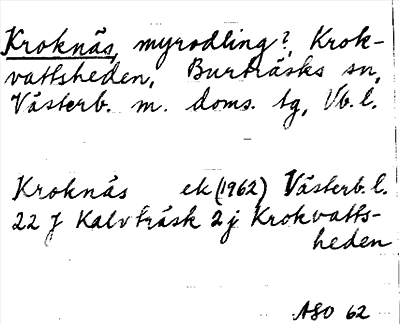 Kroknäs, myrodling?, Krok-
vattsheden, Burträsks sn,
Västerb. m. doms. tg, Vb. l.
Kroknäs ek (1962) Västerb. l.
22 J Kalvträsk 2 j Krokvatts-
heden
ASO 62